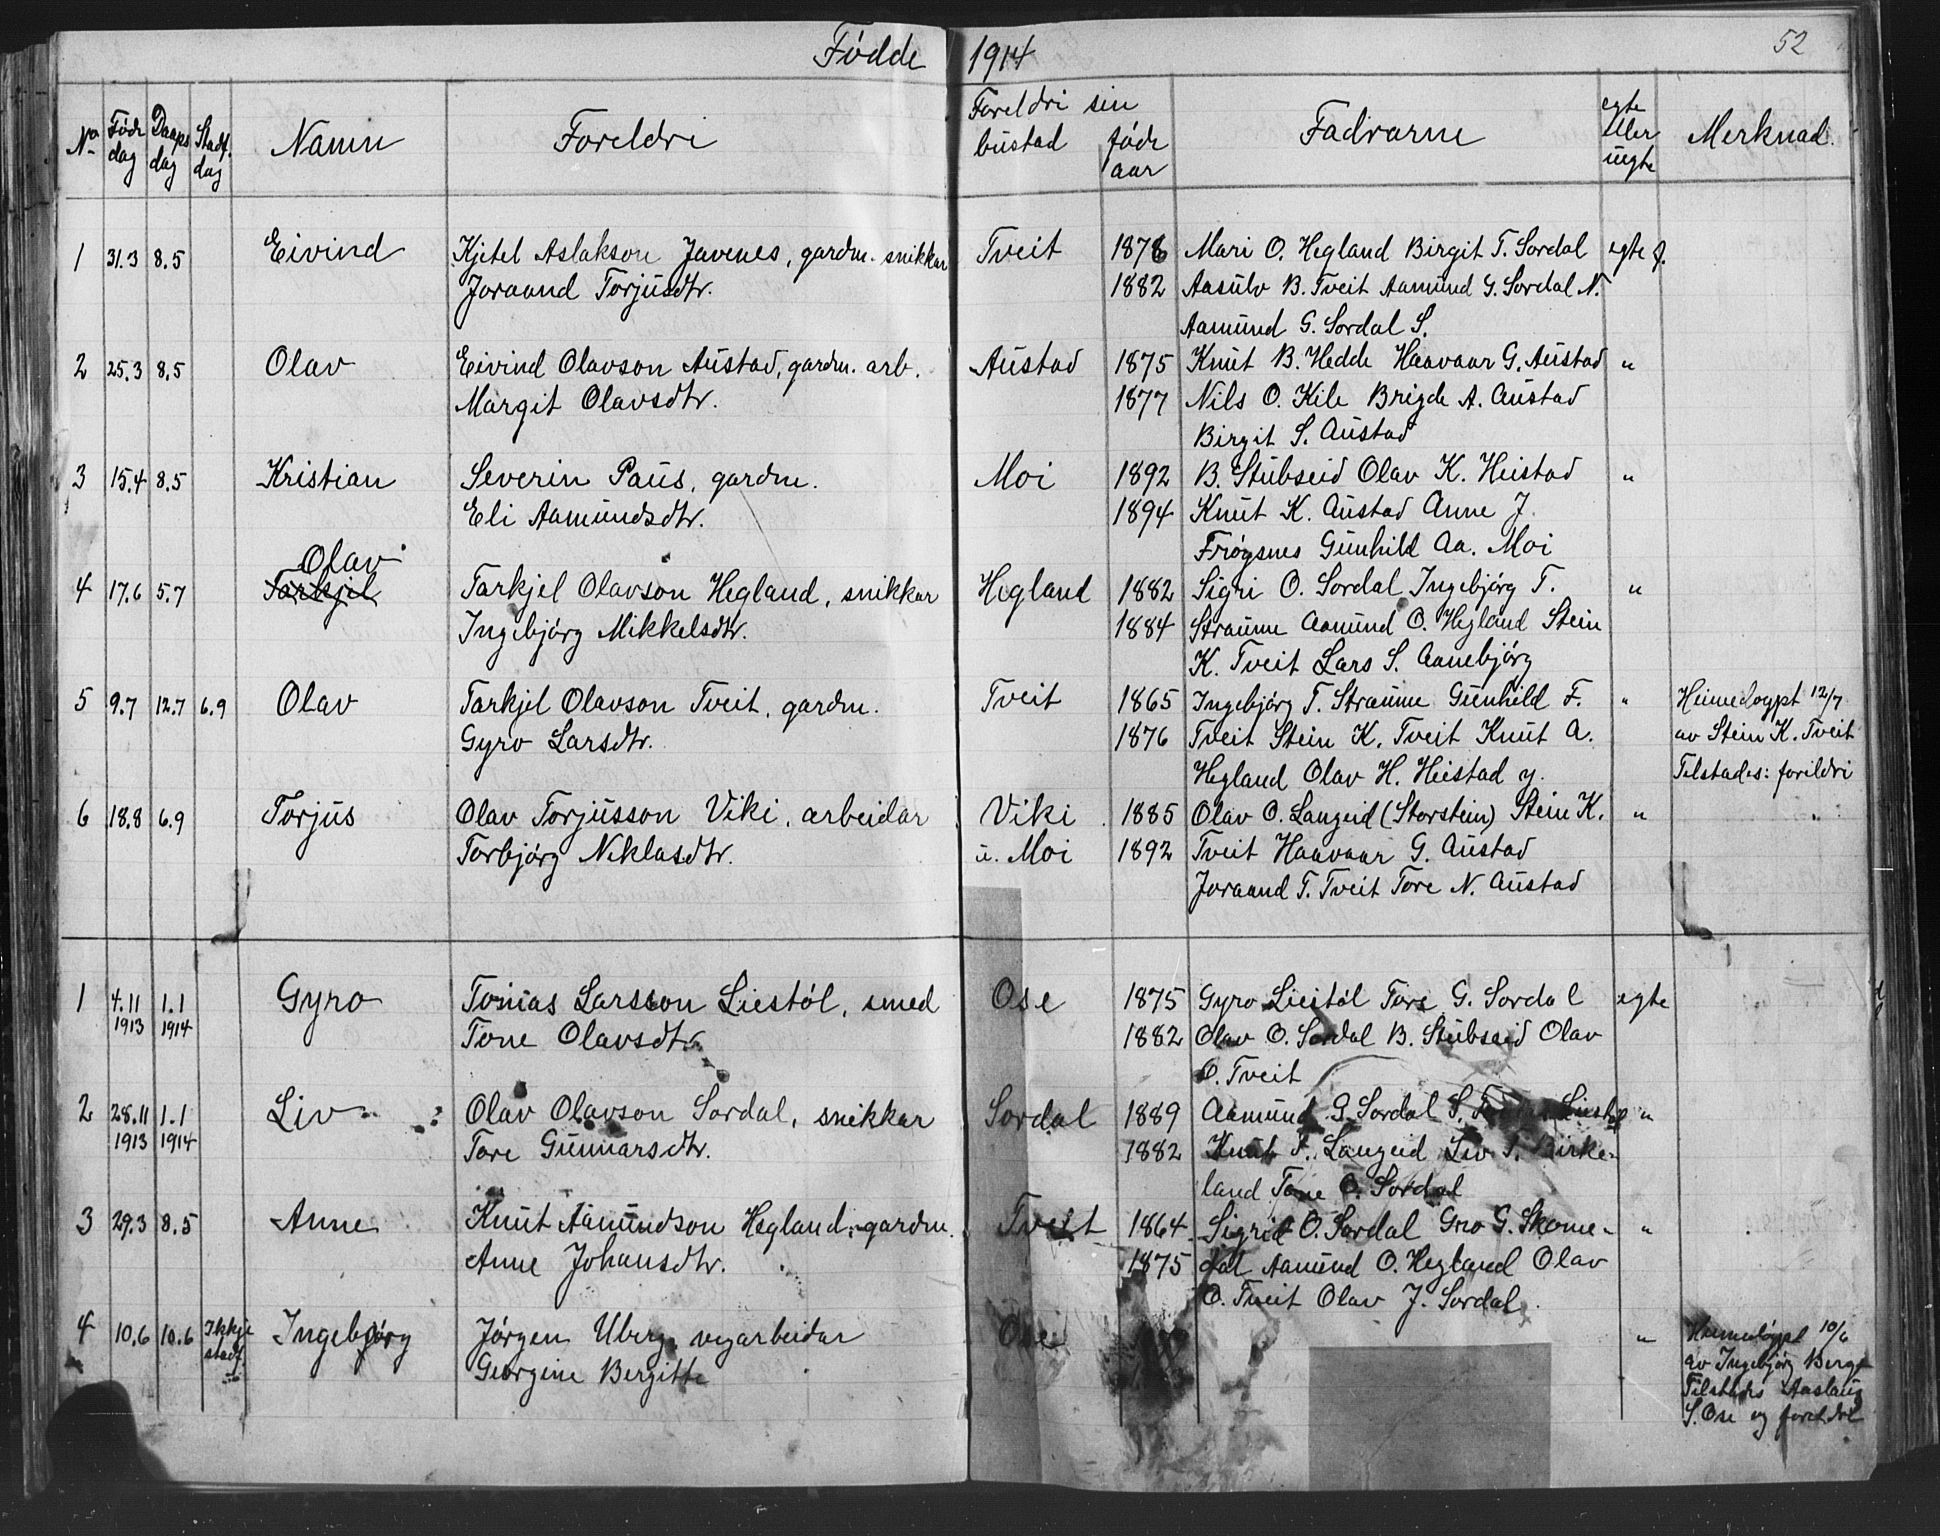 Fødde 1914
52
No Føde dag Daaps dag Stadf. dag Namn Foreldri Foreldri sin bustad føde aar Fadrarne egte eller uegte Merknad.
1 31.3 8.5 Eivind Kjetel Aslakson Javenes, gardm. snikkar Tveit 1876 Mari O. Hegland Birgit T. Sordal egte f.
Joraand Torjusdtr. 1882 Aasulv B. Tveit Aamund G. Sordal N.
Aamund G. Sordal S.
2 25.3 8.5 Olav Eivind Olavson Austad, gardm. arb. Austad 1875 Knut B. Hedde Haavaar G. Austad "
Margit Olavsdtr. 1877 Nils O. Kile Brigde A. Austad
Birgit S. Austad
3 15.4 8.5 Kristian Severin Paus, gardm. Moi 1892 B. Stubseid Olav K. Heistad "
Eli Aamundsdtr. 1894 Knut K. Austad Anne J.
Frøysnes Gunhild Aa. Moi
Olav
4 17.6 5.7 Tarkjel Tarkjel Olavson Hegland, snikkar Hegland 1882 Sigri O. Sordal Ingebjørg T. "
Ingebjørg Mikkelsdtr. 1884 Straume Aamund O. Hegland Stein
K. Tveit Lars S. Aanebjørg
5 9.7 12.7 6.9 Olav Tarkjel Olavson Tveit, gardm. Tveit 1865 Ingebjørg T. Straume Gunhild F. " Heimedøypt 12/7
Gyro Larsdtr. 1876 Tveit Stein K. Tveit Knut A. av Stein K. Tveit
Hegland Olav H. Heistad y. Tilstades: foreldri
6 18.8 6.9 Torjus Olav Torjusson Viki, arbeidar Viki 1885 Olav O. Langeid (Storstein) Stein K. "
Torbjørg Niklasdtr. u. Moi 1892 Tveit Haavaar G. Austad
Joraand T. Tveit Tore N. Austad
1 4.11 1.1 Gyro Tomas Larsson Liestøl, smed Ose 1875 Gyro Liestøl Tore G. Sordal egte
1913 1914 Tone Olavsdtr. 1882 Olav O. Sordal B. Stubseid Olav
O. Tveit
2 28.11 1.1 Liv Olav Olavson Sordal, snikkar Sordal 1889 Aamund G. Sordal S. Liestøl "
1913 1914 Tore Gunnarsdtr. 1882 Knut T. Langeid Liv T. Birke-
land Tone O. Sordal
3 29.3 8.5 Anne Knut Aamundson Hegland, gardm. Tveit 1864 Sigrid O. Sordal Gro G. Skome- "
Anne Johansdtr. 1875 dal Aamund O. Hegland Olav
O. Tveit Olav J. Sordal.
4 10.6 10.6 Ikkje stadf. Ingebjørg Jørgen Uberg, vegarbeidar Ose " Heimedøypt 10/6
Georgine Bergitte av Ingebjørg Berge
Tilstades Aaslaug
S. Ose og foreldri